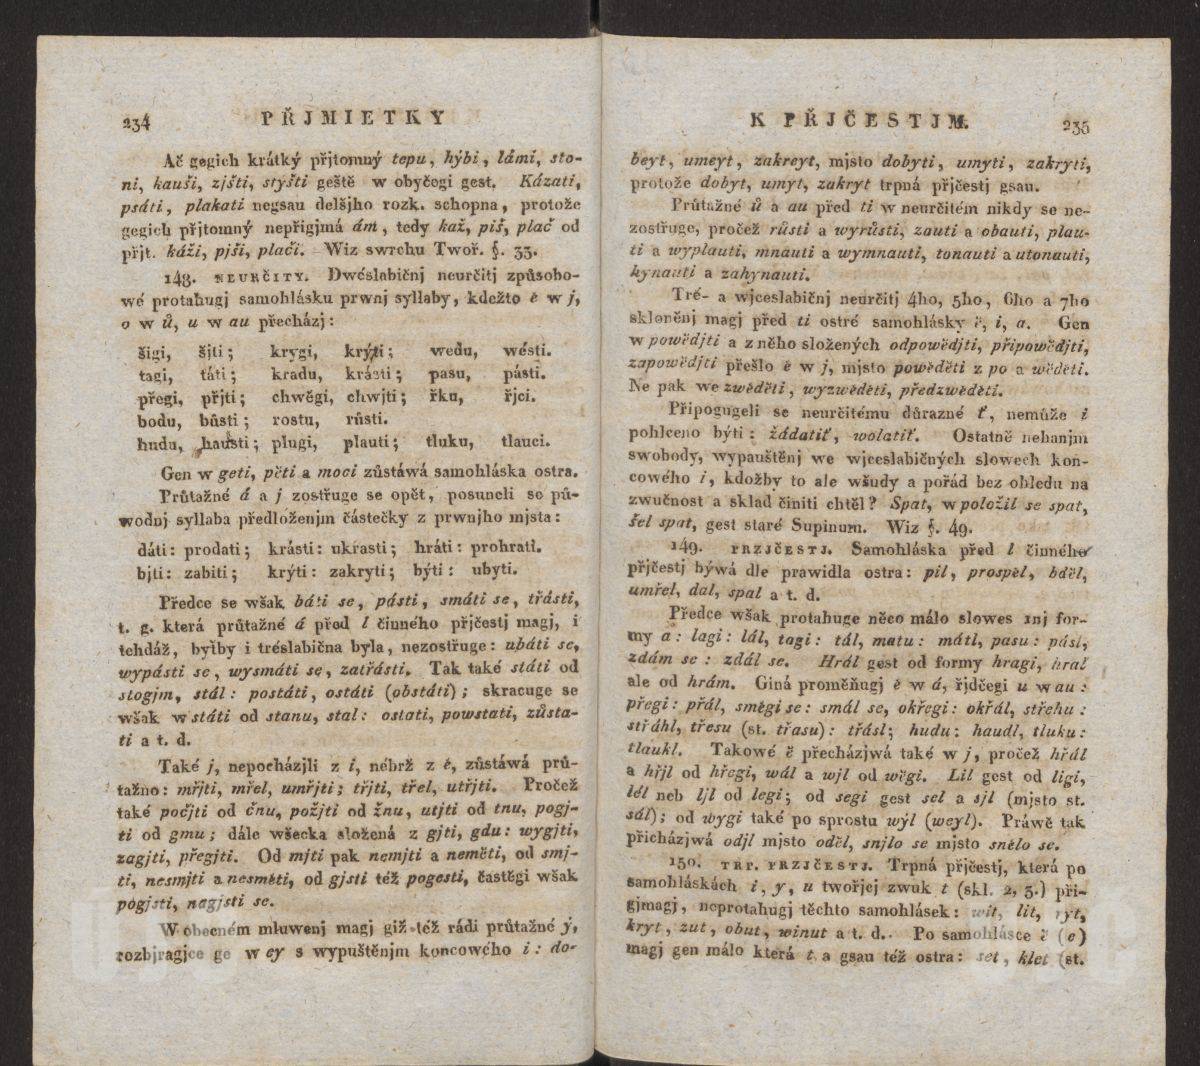 234 PŘJMIETKY
Ač gegich krátký přjtomný tepu, hýbi, lámi, sto-
ni, kauši, zjšti, styšti geště w obyčegi gest. Kázati,
psáti, plakati negsau delšjho rozk. schopna, protože
gegich přjtomný nepřigjmá ám, tedy kaž, piš, plač od
přjt. káži, pjši, plači. Wiz swrchu Twoř. §. 33.
148. NEURČITY. Dwéslabičnj neurčitj způsobo-
wé protahugj samohlásku prwnj syllaby, kdežto ě w j,
o w ů, u w au přecházj:
šigi, šjti; krygi, krýti; wedu, wésti.
tagi, táti; kradu, krásti; pasu, pásti.
přegi, přjti; chwěgi, chwjti; řku, řjci.
bodu, bůsti; rostu, růsti.
hudu, hausti; plugi, plauti; tluku, tlauci.
Gen w geti, pěti a moci zůstáwá samohláska ostra.
Průtažné á a j zostřuge se opět, posuneli se pů-
wodnj syllaba předloženjm částečky z prwnjho mjsta:
dáti: prodati; krásti: ukrasti; hráti: prohrati.
bjti: zabiti; krýti: zakryti; býti: ubyti.
Předce se však báti se, pásti, smáti se, třásti,
t. g. která průtažné á před l činného přjčestj magj, i
tehdáž, byťby i tréslabična byla, nezostřuge: ubáti se,
wypásti se, wysmáti se, zatřásti. Tak také státi od
stogjm, stál: postáti, ostáti (obstáti); skracuge se
wšak w státi od stanu, stal: ostati, powstati, zůsta-
ti a t. d.
Také j, nepocházjli z i, nébrž z é, zůstáwá prů-
tažno: mřjti, mřel, umřjti; třjti, třel, utřjti. Pročež
také počjti od čnu, požjti od žnu, utjti od tnu, pogj-
ti od gmu; dále wšecka složená z gjti, gdu: wygjti,
zagjti, přegjti. Od mjti pak nemjti a neměti, od smj-
ti, nesmjti a nesměti, od gjsti též pogesti, častěgi wšak
pogjsti, nagjsti se.
W obecném mluwenj magj giž též rádi průtažné ý,
rozbjragjce ge w ey s wypuštěnjm koncowého i: do-
K PŘJČESTJM. 235
beyt, umeyt, zakreyt, mjsto dobyti, umyti, zakryti,
protože dobyt, umyt, zakryt trpná přjčestj gsau.
Průtažné ů a au před ti w neurčitém nikdy se ne-
zostřuge, pročež růsti a wyrůsti, zauti a obauti, plau-
ti a wyplauti, mnauti a wymnauti, tonauti a utonauti,
hynauti a zahynauti.
Tré- a wjceslabičnj neurčitj 4ho, 5ho, 6ho a 7ho
skloněnj magj před ti ostré samohlásky ě, i, a. Gen
w powědjti a z něho složených odpowědjti, připowědjti,
zapowědjti přešlo ě w j, mjsto powěděti z po a wěděti.
Ne pak we zwěděti, wyzwěděti, předzwěděti.
Připogugeli se neurčitému důrazné ť, nemůže i
pohlceno býti: žádatiť, wolatiť. Ostatně nehanjm
swobody, wypauštěnj we wjceslabičných slowech kon-
cowého i, kdožby to ale wšudy a pořád bez ohledu na
zwučnost a sklad činiti chtěl? Spat, w položil se spat,
šel spat, gest staré Supinum. Wiz §. 49.
149. PRZJČESTJ. Samohláska před l činného
přjčestj býwá dle prawidla ostra: pil, prospěl, bděl,
umřel, dal, spal a t. d.
Předce wšak protahuge něco málo slowes 1nj for-
my a: lagi: lál, tagi: tál, matu: mátl, pasu: pásl,
zdám se: zdál se. Hrál gest od formy hragi, hral
ale od hrám. Giná proměňugj ě w á, řjdčegi u w au:
přegi: přál, směgi se: smál se, okřegi: okřál, střehu:
střáhl, třesu (st. třasu): třásl; hudu: haudl, tluku:
tlaukl. Takowé ě přecházjwá také w j, pročež hřál
a hřjl od hřegi, wál a wjl od wěgi. Lil gest od ligi,
lél neb ljl od legi; od segi gest sel a sjl (mjsto st.
sál); od wygi také po sprostu wýl (weyl). Práwě tak
přicházjwá odjl mjsto oděl, snjlo se mjsto snělo se.
150. TRP. PRZJČESTJ. Trpná přjčestj, která po
samohláskách i, y, u twořjcj zwuk t (skl. 2, 3.) při-
gjmagj, neprotahugj těchto samohlásek: wit, lit, ryt,
kryt, zut, obut, winut a t. d. Po samohlásce ě (e)
magj gen málo která t, a gsau též ostra: set, klet (st.